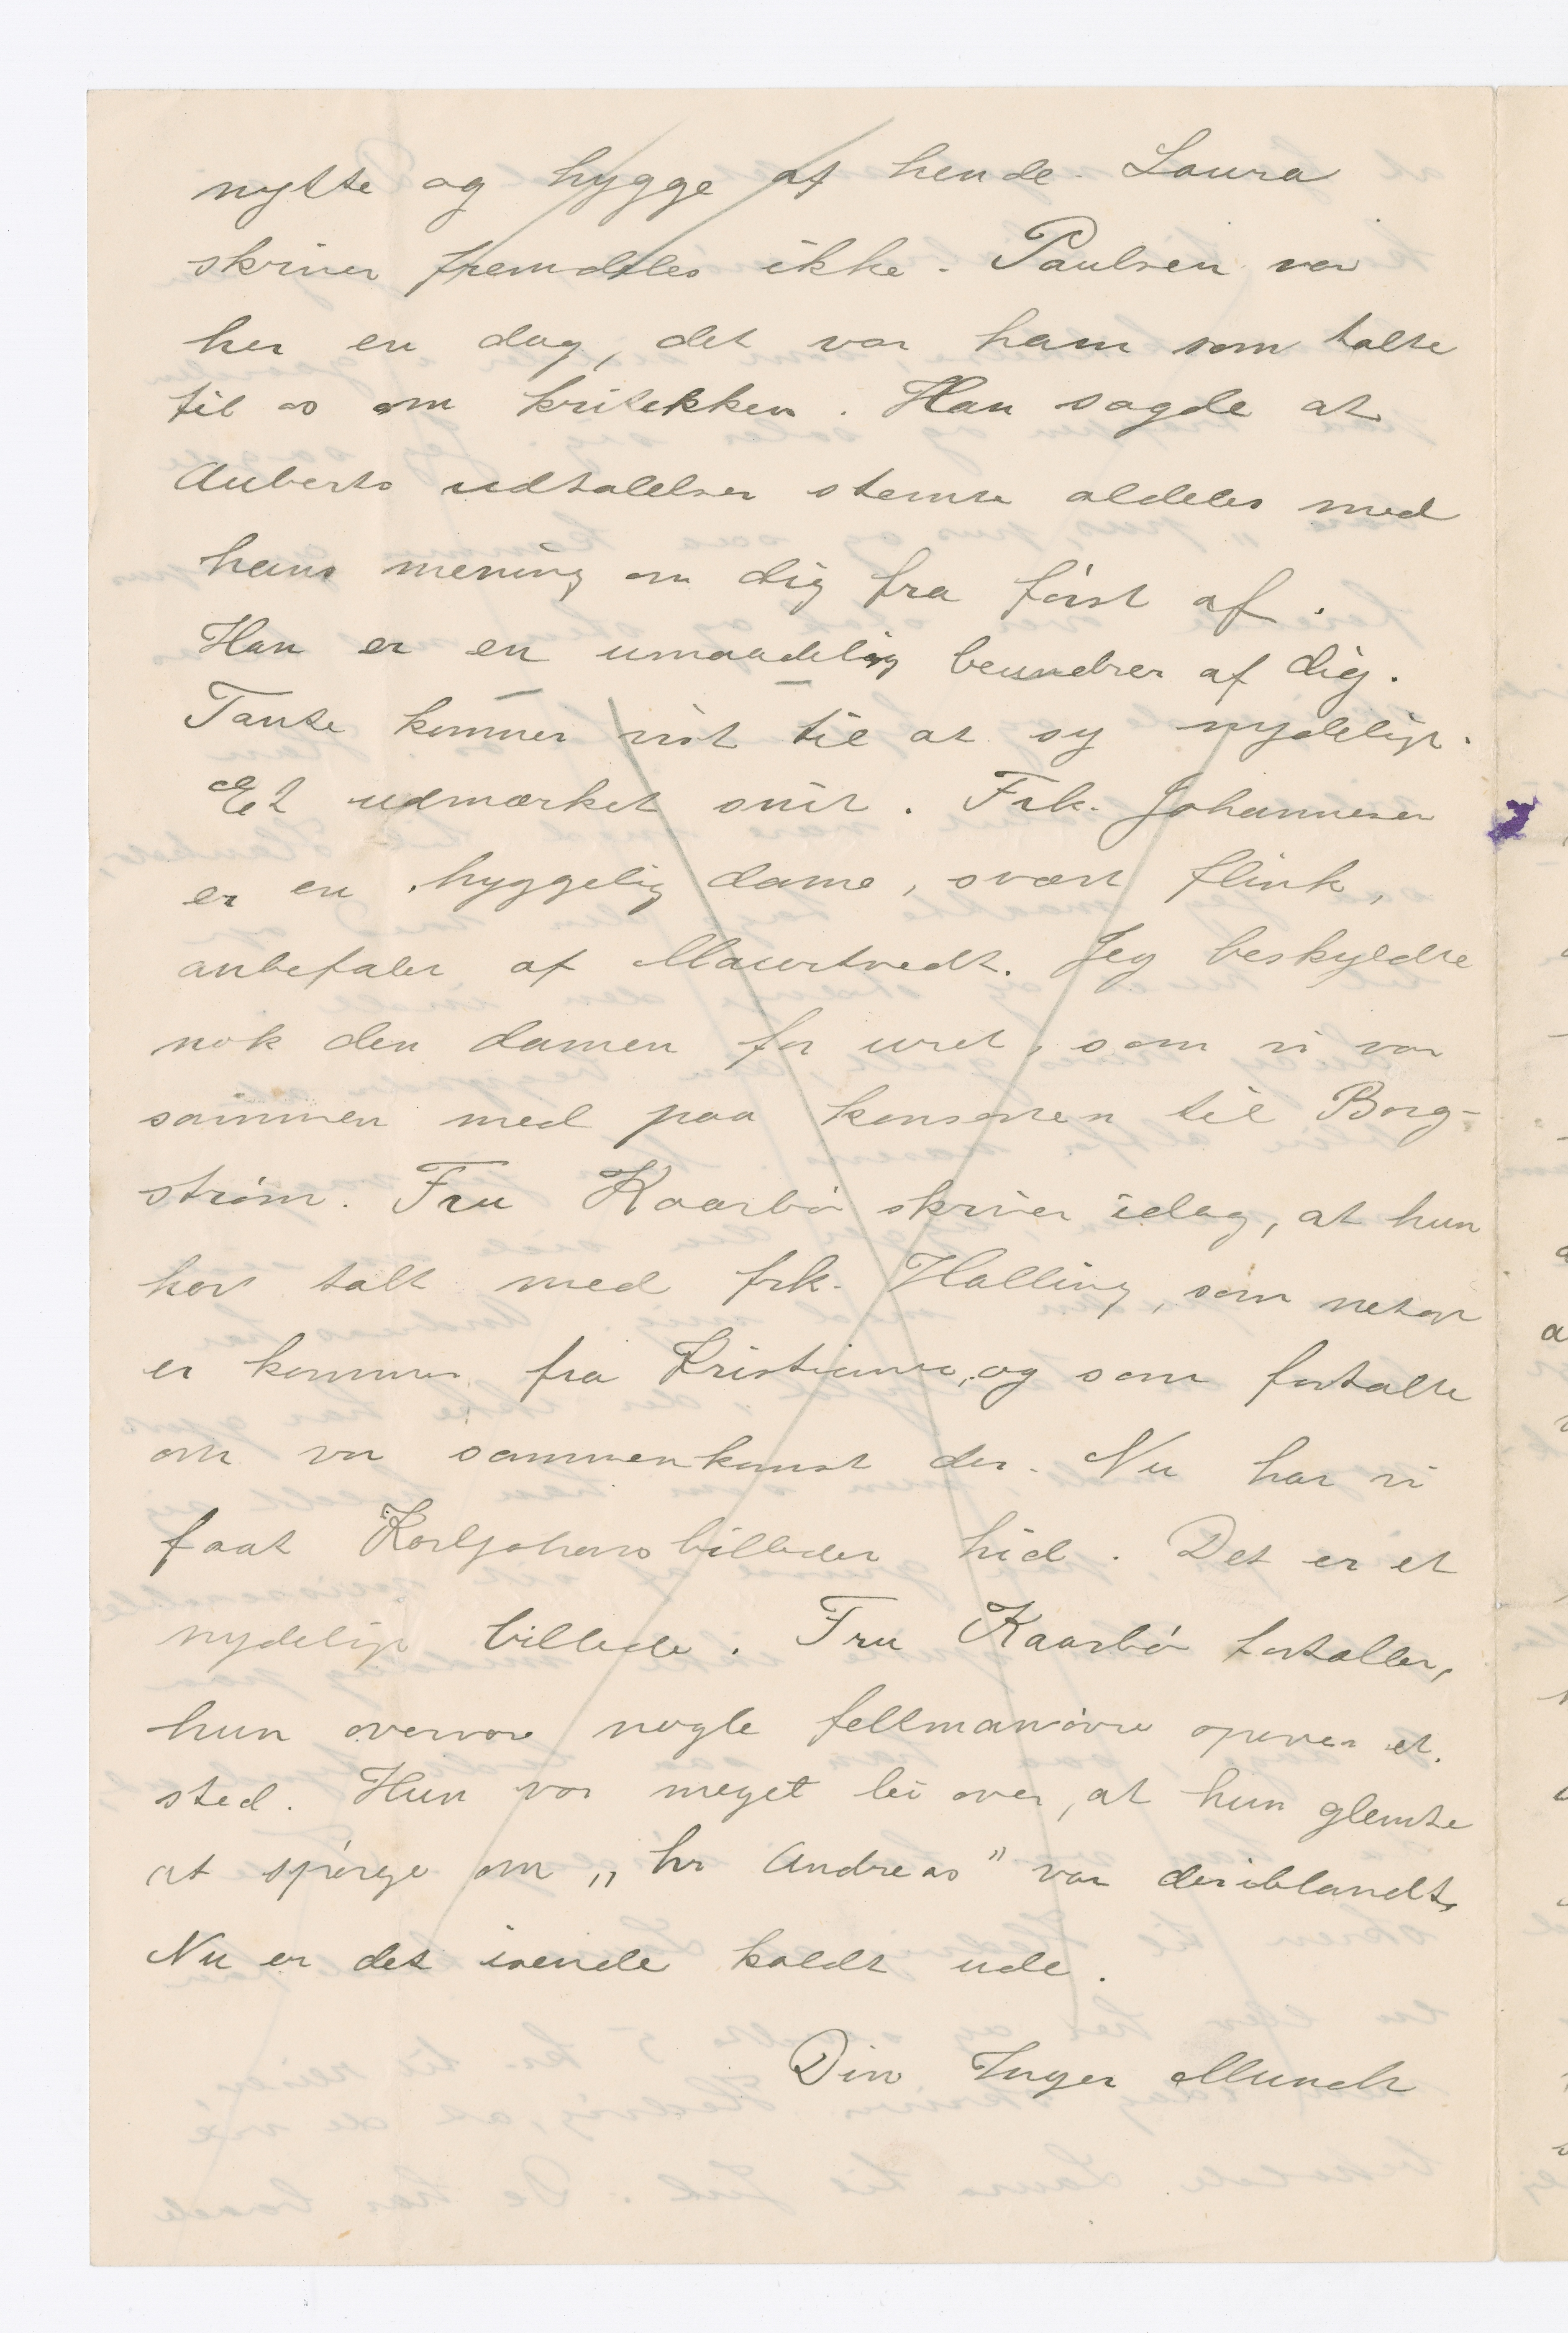 nytte og hygge af hende. Laura
skriver fremdeles ikke. Paulsen var
her en dag, det var ham som talte
til os om kritekken. Han sagde at
Auberts udtalelser stemte aldeles med
hans mening om dig fra først af.
Han er en umaadelig beundrer af dig.
Tante kommer vist til at sy nydeligt.
Et udmærket snit. Frk. Johannesen
er en hyggelig dame, svært flink,
anbefalet af Maurtvedt. Jeg beskyldte
nok den damen for uret, som vi var
sammen med paa konserten til Borg-
strøm. Fru Kaarbø skriver idag, at hun
har talt med frk. Halling, som netop
er kommet fra Kristiania, og som fortalte
om vor sammenkomst der. Nu har vi
faat Karljohansbilledet hid. Det er et
nydeligt billede. Fru Kaarbø fortæller,
hun overvar nogle feltmanøvre oppe et
sted. Hun var meget lei over, at hun glemte
at spørge om „hr Andreas" var deriblandt.
Nu er det isende koldt ude.
Din Inger Munch